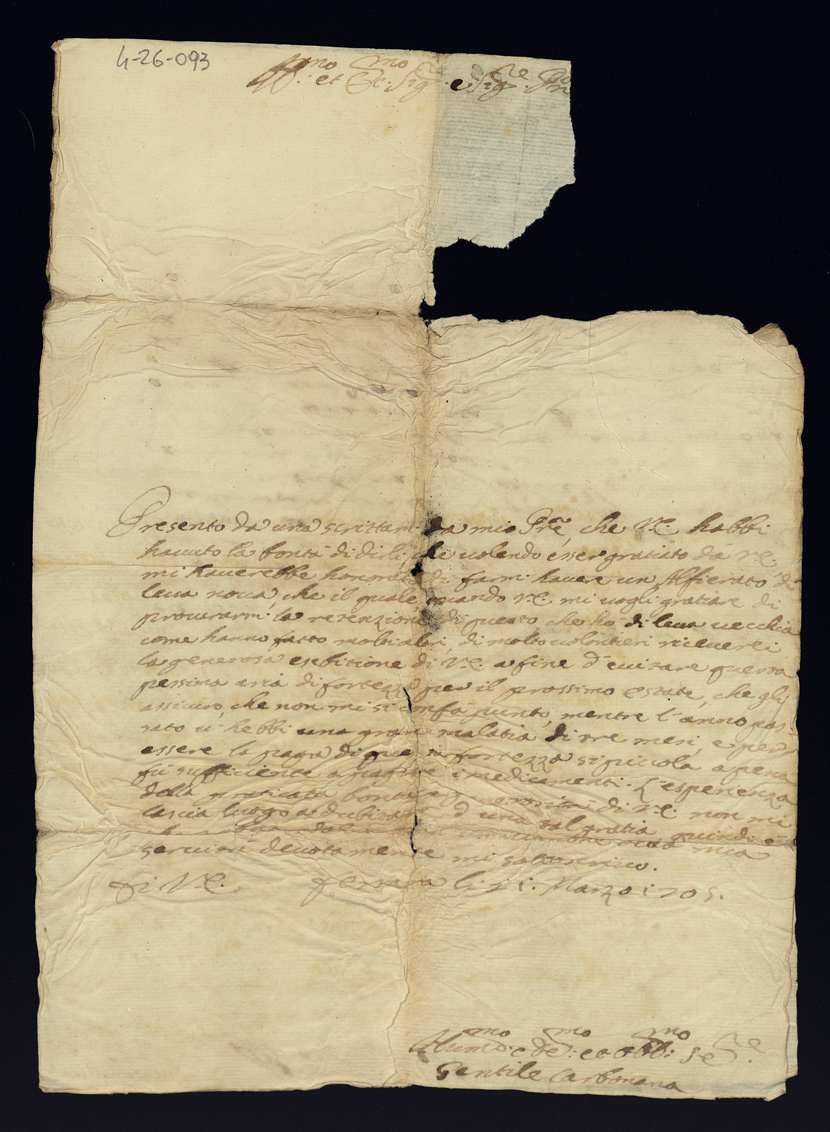 4-26-093
Ill.mo et Ecc. Sig.re e Sig.re
Presento da una scrittami da mio Pre, che V.E. habbi
havuto la bontà di dirli, che volendo esser gratiato da V.E.
mi haverebbe honorato di farmi havere un Alfierato di
leva nova, che il quale quando V.E. mi vogli gratiare di
procurarmi la retenzione di questo che ho di leva vecchia
come hanno fatto molti altri, di molto volontieri riceverei
la generosa esebitione di V.E. a fine d'evitare questa
pessina aria di fortezza per il prossimo estate, che gli
assicuro, che non mi si confà punto, mentre l'anno pas-
sato vi hebbi una gran malatia di tre mesi, e per
essere la paga di questa fortezza si piccola apena
fù sufficiente a pagare i medicamenti. L'esperienza
della praticata bontà e generosità di V.E. non mi
lascia luogo a dubitare d'una tal gratia quindi
mia
devotamente mi sottoscrivo.
Di V.E. Ferrara li Marzo 1705.
Humo: e De: et Obb: Se.re
Gentile Carbonana